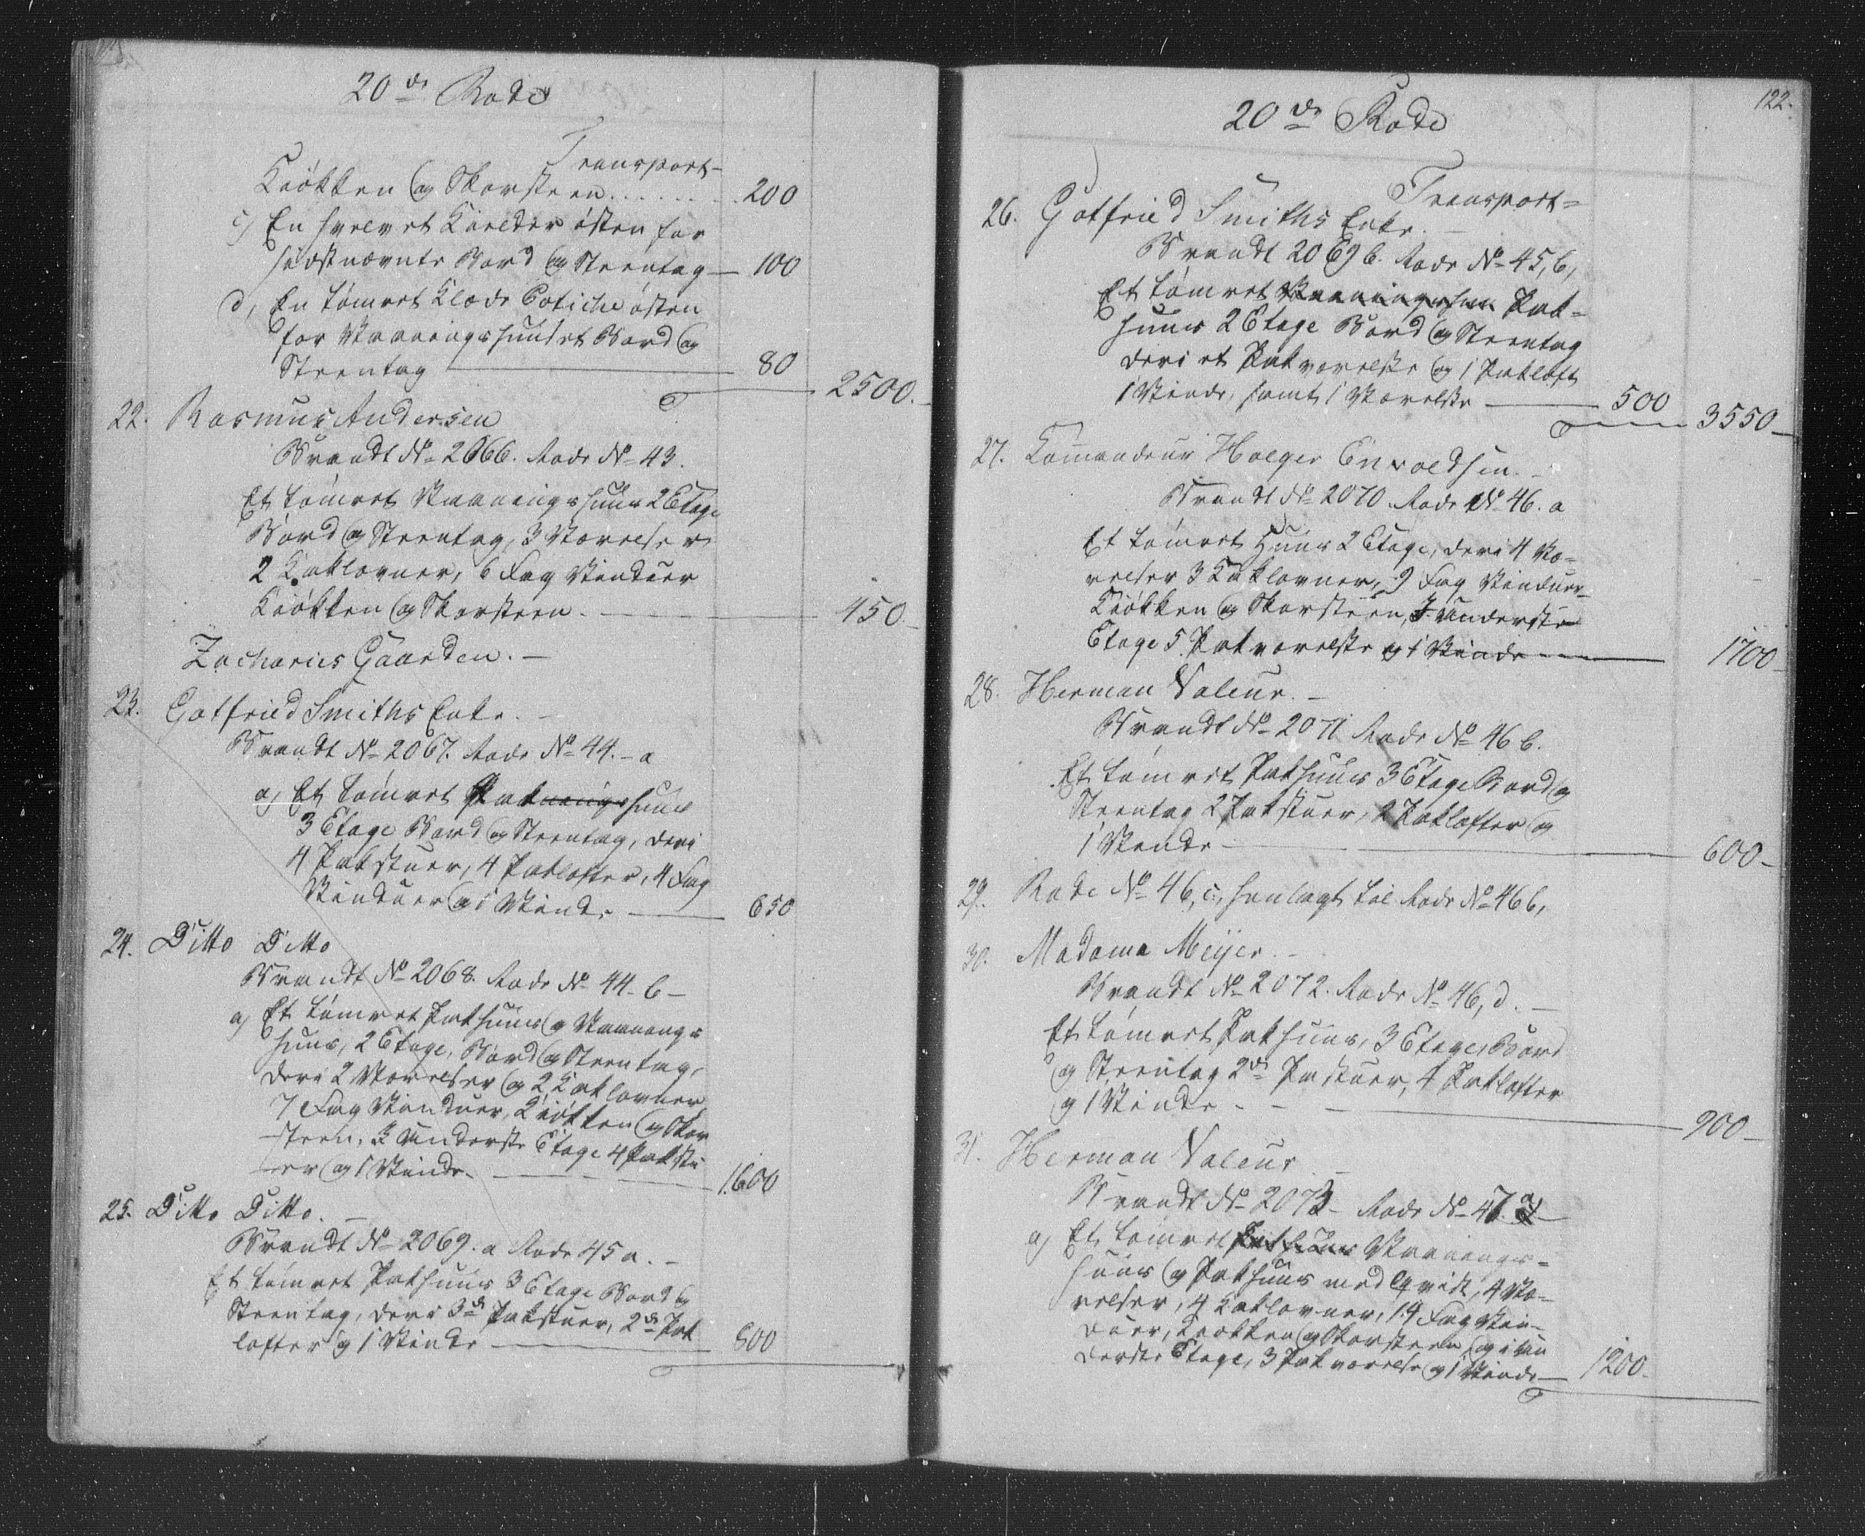 20de Rode
Transport
Kiøkken og Skorsteen 200
c, En hvelvet Kielder østen for
sidstnævnte Bord og Steentag 100
d, En tømret Klæde Botiche østen
for Vaaningshuuset Bord og
Steentag 80
2500.
22. Rasmus Andersen
Brandt No 2066. Rode No 43.
Et tømret Vaaningshuus 2 Etage
Bord og Steentag, 3 Værelser
2 Kaklovner, 6 Fag Vinduer
Kiøkken og Skorsteen. 450.
Zacharies Gaarden.
23. Gotfried Smiths Enke.
Brandt No 2067. Rode No 44. a
a, Et tømret Pakhuus
3 Etage Bord og Steentag, deri
4 Pakstuer, 4 Paklofter, 4 Fag
Vinduer og 1 Vinde 650
24. Ditto Ditto
Brandt No 2068. Rode No 44. b
a, Et tømret Pakhuus og Vaanings
huus, 2 Etage, Bord og Steentag,
deri 2 Værelser og 2 Kaklovner
7 Fag Vinduer, Kiøkken og Skor
steen. I Underste Etage 4 Pakstu
er og 1 Vinde. 1600
25. Ditto Ditto.
Brandt No 2069. a Rode 45 a.
Et tømret Pakhuus 3 Etage Bord og
Steentag, deri 3de Pakstuer, 2de Pak
lofter og 1 Vinde 800
122.
20de Rode
Transport
26. Gotfried Smiths Enke.
Brandt 2069 b. Rode No 45, b,
Et tømret Vaaningshuus Pak-
huus 2 Etage Bord og Steentag
deri et Pakværelse og 1 Pakloft
1 Vinde, samt 1 Værelse 500
3550
27. Commandeur Holger Enwoldsen.
Brandt No 2070. Rode No 46. a
Et tømret Huus 2 Etage, deri 4 Væ-
relser 3 Kaklovner, 9 Fag Vinduer
Kiøkken og Skorsteen, I Underste
Etage 5 Pakværelse og 1 Vinde 1700
28. Herman Valeur.
Brandt No 2071. Rode No 46 b.
Et tømret Pakhuus 3 Etage Bord og
Steentag 2 Pakstuer, 2 Paklofter og
1 Vinde 600
29. Rode No 46, c, henlagt til Rode No 46 b,
30. Madame Meijer.
Brandt No 2072. Rode No 46, d.
Et tømret Pakhuus, 3 Etage, Bord
og Steentag 2de Pakstuer, 4 Paklofter
og 1 Vinde 900
31. Herman Valeur
Brandt No 2073 Rode No 47. a
a, Et tømret Pakhuus Vaanings-
huus og Pakhuus med Qvist, 4 Væ-
relser, 4 Kaklovner, 14 Fag Vin-
duer, Kiøkken og Skorsteen og i Un
derste Etage, 3 Pakværelse og 1 Vinde 1200